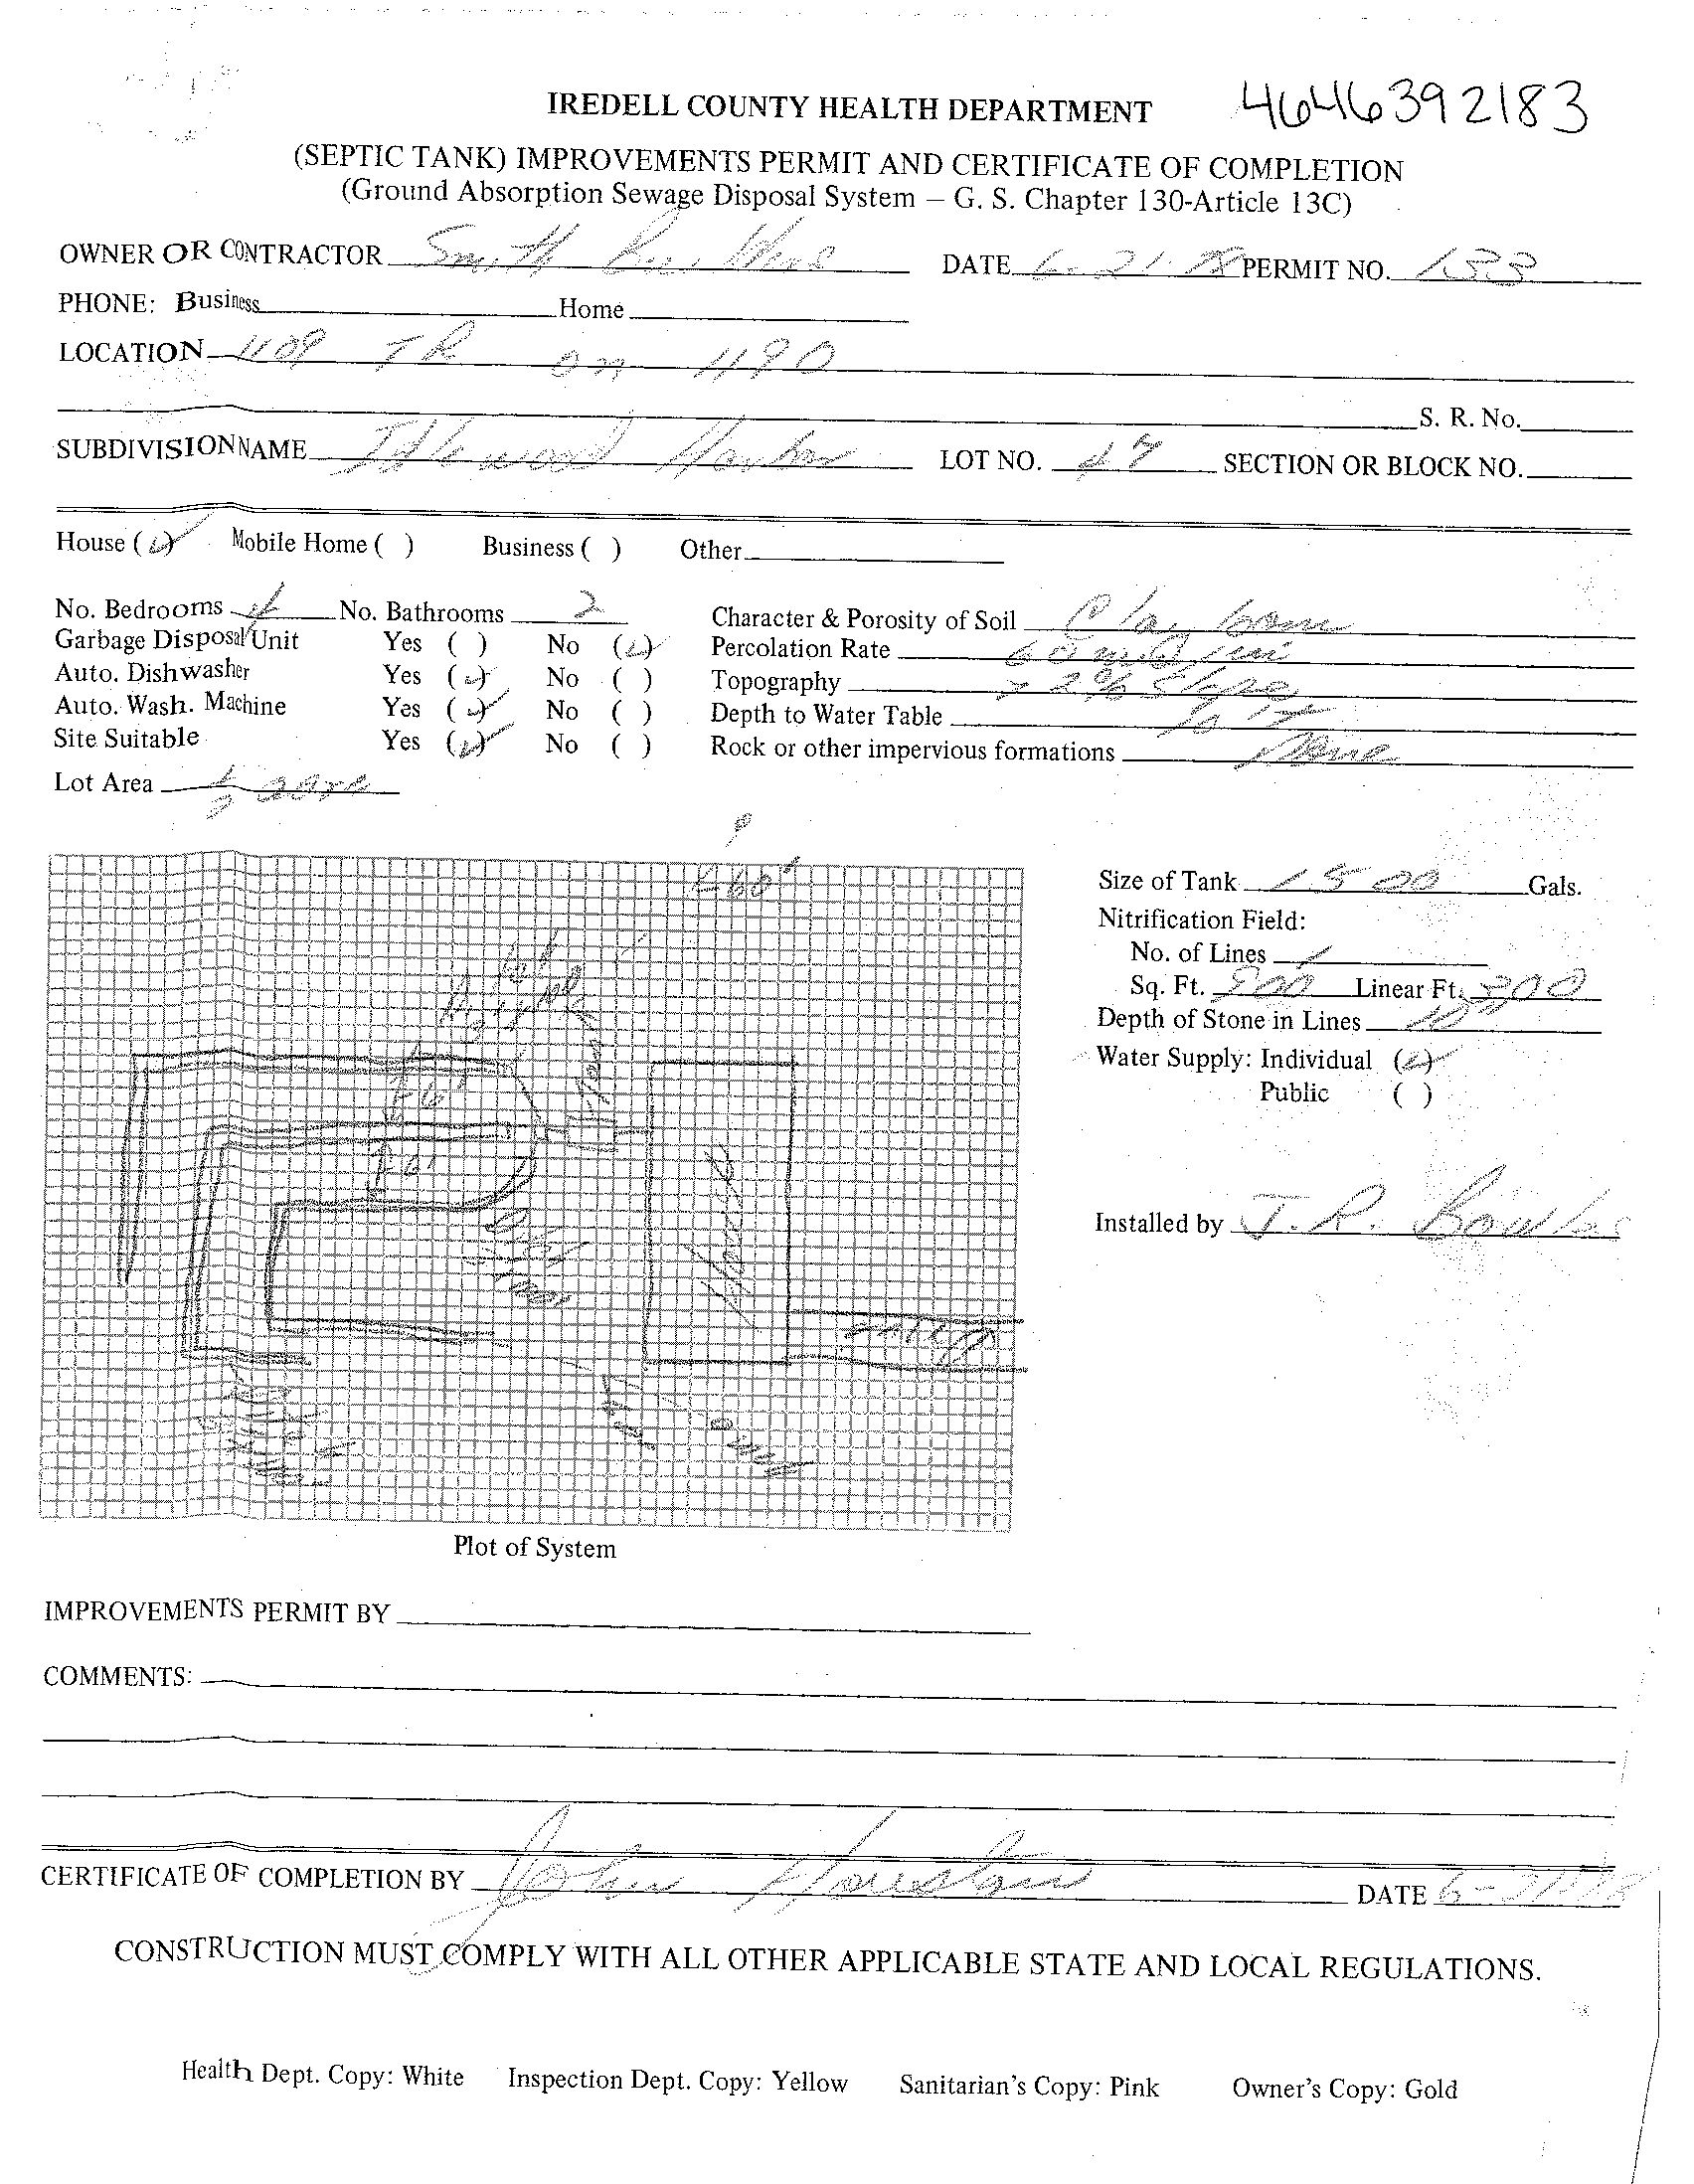 IREDELL COUNTY HEALTH DEPARTMENT 4646392183
(SEPTIC TANK) IMPROVEMENTS PERMIT AND CERTIFICATE OF COMPLETION
(Ground Absorption Sewage Disposal System – G. S. Chapter 130-Article 13C)
OWNER OR CONTRACTOR Smith Builders DATE 6-21-78 PERMIT NO.
PHONE: Business Home
LOCATION 1109 TR on 1190
S. R. No.
SUBDIVISION NAME Idlewood Harbor LOT NO. 47 SECTION OR BLOCK NO.
House (✓) Mobile Home ( ) Business ( ) Other
No. Bedrooms 4 No. Bathrooms 2 Character & Porosity of Soil Clay loam
Garbage Disposal Unit Yes ( ) No (✓) Percolation Rate 60
Auto. Dishwasher Yes (✓) No ( ) Topography > 2% slope
Auto. Wash. Machine Yes (✓) No ( ) Depth to Water Table
Site Suitable Yes (✓) No ( ) Rock or other impervious formations None
Lot Area acre
60'
Size of Tank 1500 Gals.
Nitrification Field:
No. of Lines
Sq. Ft. 900 Linear Ft. 300
Depth of Stone in Lines
Water Supply: Individual (✓)
Public ( )
Installed by J. R. Bowles
Plot of System
IMPROVEMENTS PERMIT BY
COMMENTS:
CERTIFICATE OF COMPLETION BY John Houston DATE
CONSTRUCTION MUST COMPLY WITH ALL OTHER APPLICABLE STATE AND LOCAL REGULATIONS.
Health Dept. Copy: White Inspection Dept. Copy: Yellow Sanitarian's Copy: Pink Owner's Copy: Gold